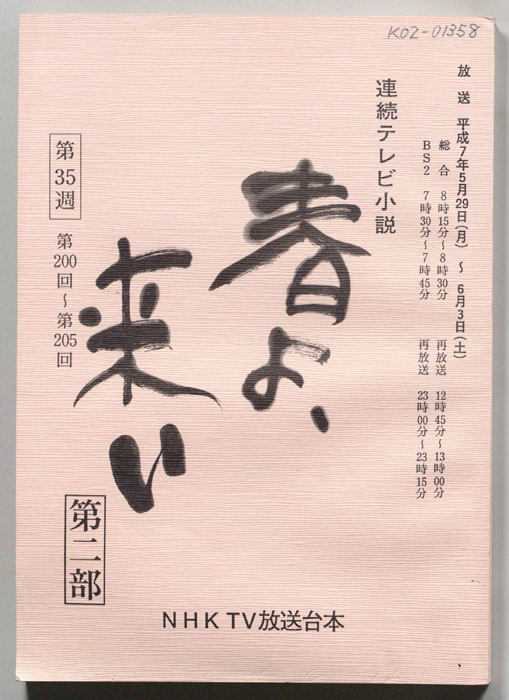 K02-01358
放送 平成7年5月29日(月)～6月3日(土)
総合 8時15分～8時30分 再放送 12時45分～13時00分
BS2 7時30分～7時45分 再放送 23時00分～23時15分
連続テレビ小説
春よ、
来い
第35週
第200回～第205回
第二部
NHK TV放送台本